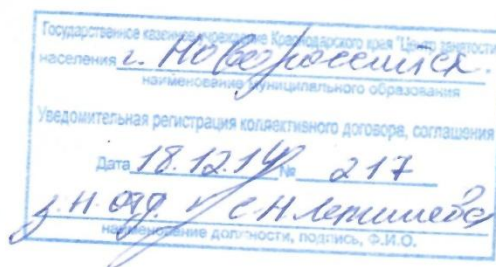 Государственное казенное учреждение Краснодарского края "Центр занятости
населения г. Новороссийск.
наименование муниципального образования
Уведомительная регистрация коллективного договора, соглашения
Дата 18.12.19 № 217
з.н. отд.
наименование должности, подпись, Ф.И.О.